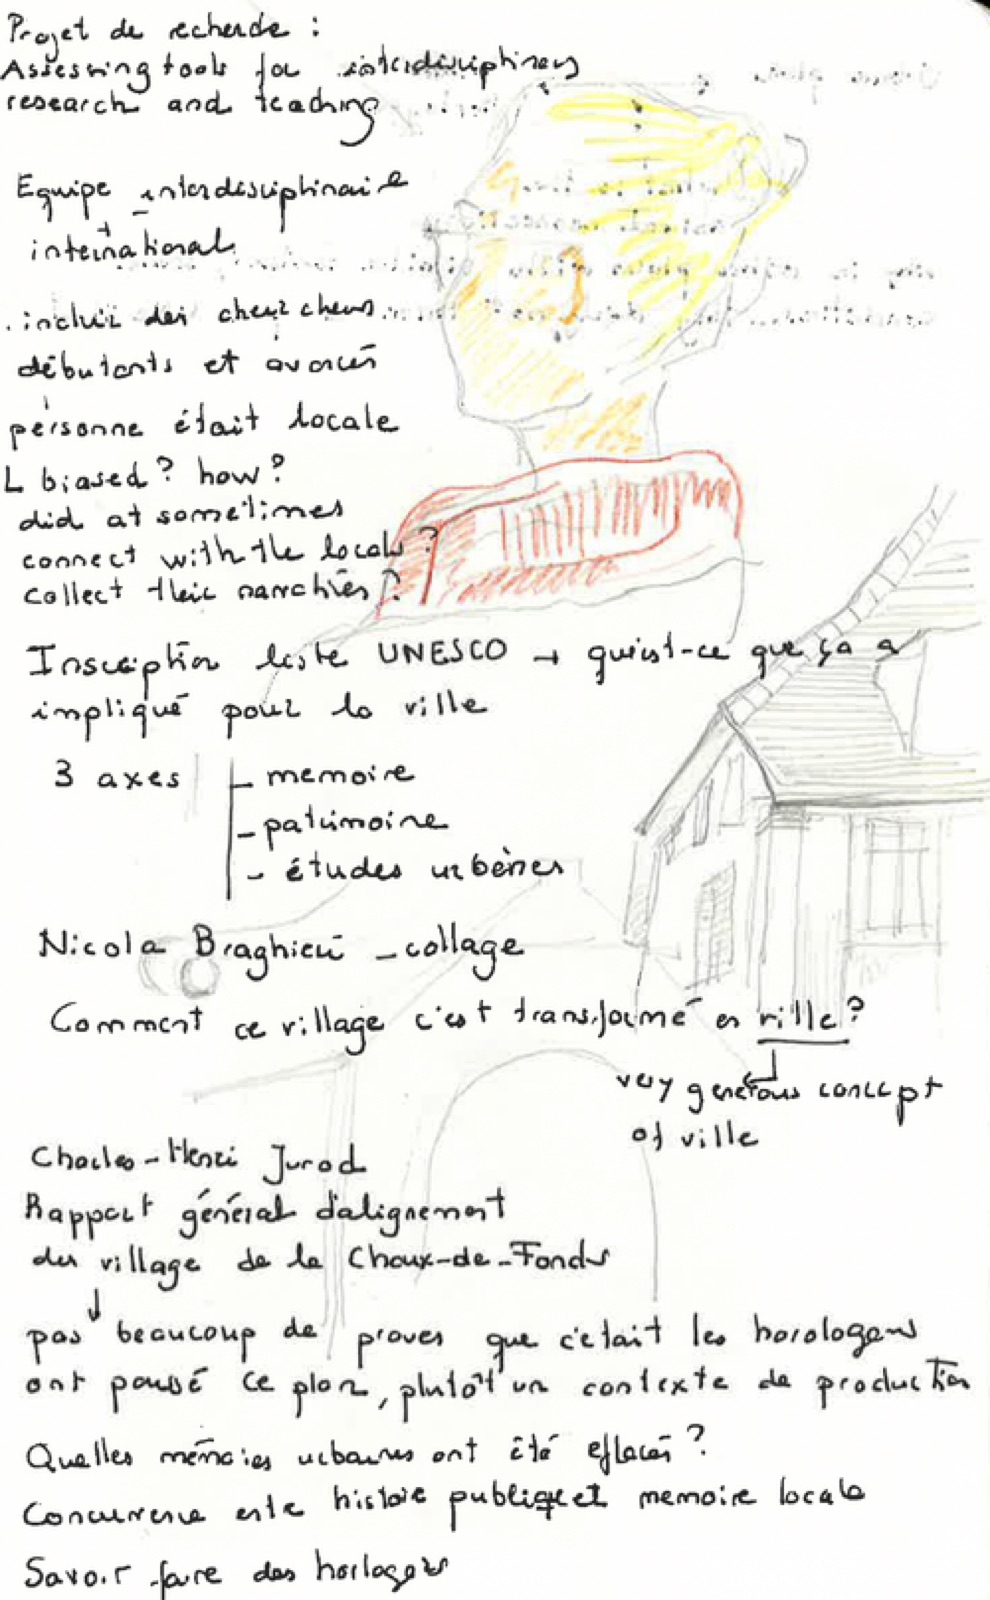 Projet de recherche :
Assessing tools for interdisciplinary
research and teaching
Equipe interdisciplinaire
+
international
. inclui des cheurcheurs
débutants et avancés
personne était locale
L biased? how?
did at sometimes
connect with the locals ?
collect their narratives ?
Inscription liste UNESCO → qu'est-ce que ça a
impliqué pour la ville
3 axes
- memoire
- patrimoine
- études urbènes
Nicola Braghieri - collage
Comment ce village c'est transformé en ville?
very generous concept
of ville
Charles-Henri Jurod
Rapport général d'alignement
du village de la Chaux-de-Fonds
pas beaucoup de proves que c'était les horologers
ont poussé ce plan, plutôt un contexte de production
Quelles mémoires urbaines ont été effacés?
Concurrence entre histoire publique et memoire locale
Savoir-faire des horlogers